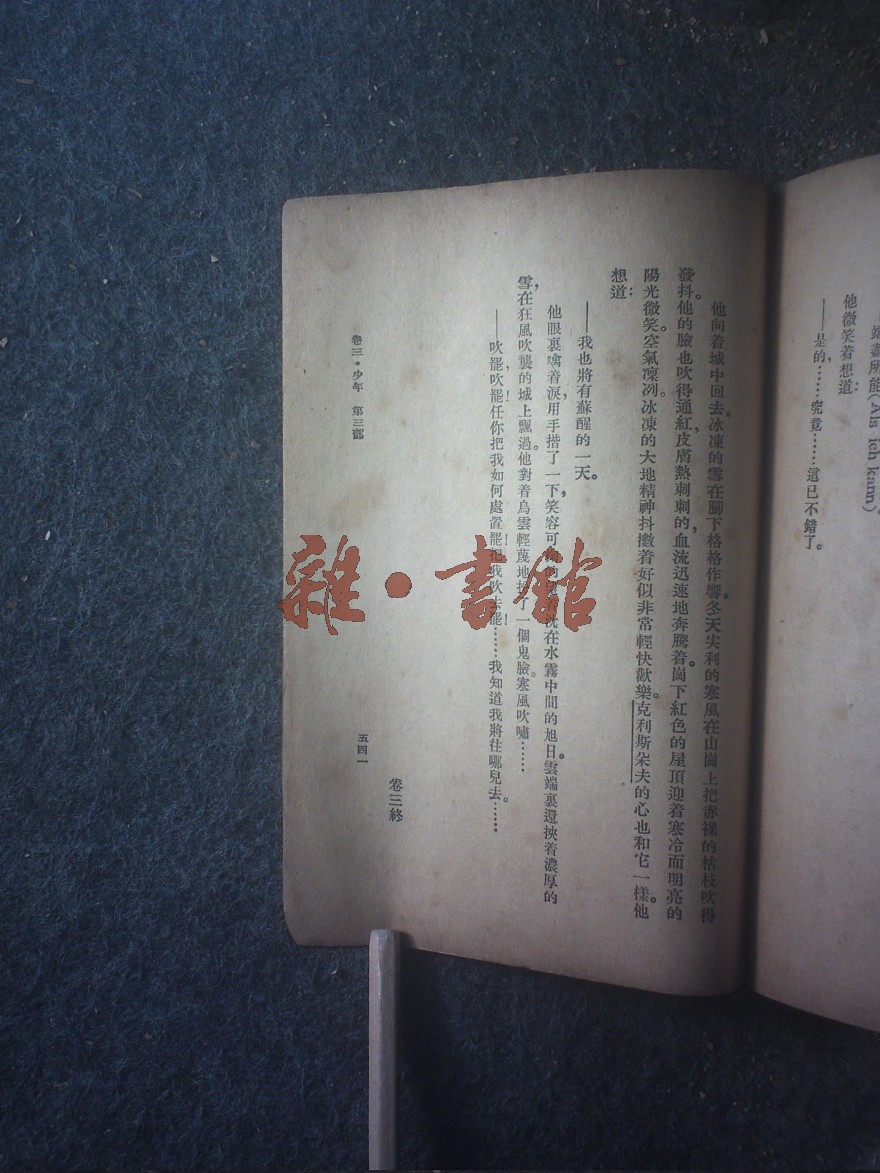 竭盡所能(Als ich kann)。
他微笑着想道：
——是的，……究竟……這已不錯了。
他向着城中回去。冰凍的雪在腳下格格作響。冬天尖利的寒風在山崗上把赤裸的枯枝吹得
發抖。他的臉也吹得通紅，皮膚熱刺刺的，血流迅速地奔騰着。崗下紅色的屋頂迎着寒冷而明亮的
陽光微笑。空氣凜冽。冰凍的大地精神抖擻着好似非常輕快歡樂。克利斯朵夫的心也和它一樣。他
想道：
——我也將有蘇醒的一天。
他眼裏噙着淚，用手揩了一下，笑容可掬的在水霧中間的旭日。雲端裏還挾着濃厚的
雪，在狂風吹襲的城上飄過。他對着烏雲輕蔑地了一個鬼臉。寒風吹嘯……
——吹罷，吹罷！任你把我如何處置罷！把我吹去罷！……我知道我將往哪兒去。……
卷三終
卷三・少年　第三部
五四一
雜・書館